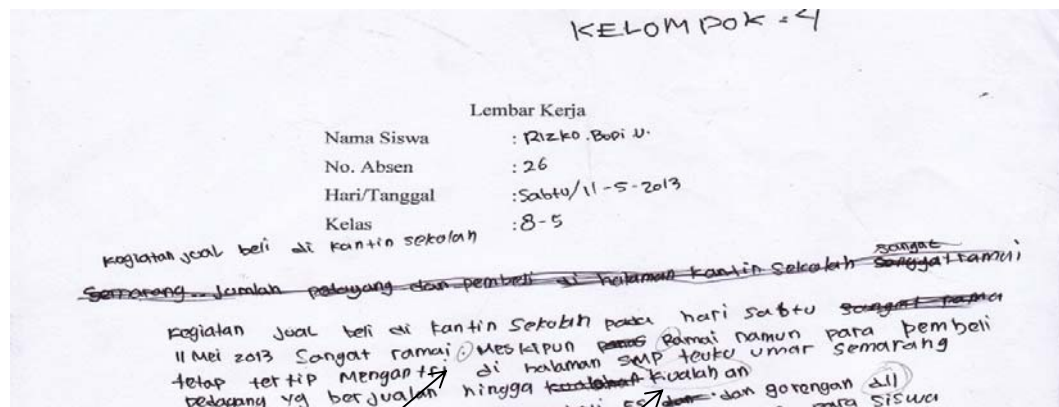 KELOMPOK : 4
Lembar Kerja
Nama Siswa : Rizko.Bopi U.
No. Absen : 26
Hari/Tanggal : Sabtu/11-5-2013
Kelas : 8-5
kegiatan jual beli di kantin sekolah
sangat
Semarang.. Jumlah pedagang dan pembeli di halaman kantin Sekolah ramai
kegiatan jual beli di kantin Sekolah pada hari sabtu sangat
11 Mei 2013 Sangat ramai. Meskipun Ramai namun para pembeli
tetap tertip Mengantri di halaman SMP teuku umar Semarang
pedagang yg berjualan hingga kualahan
es dan dan gorengan dll
para siswa